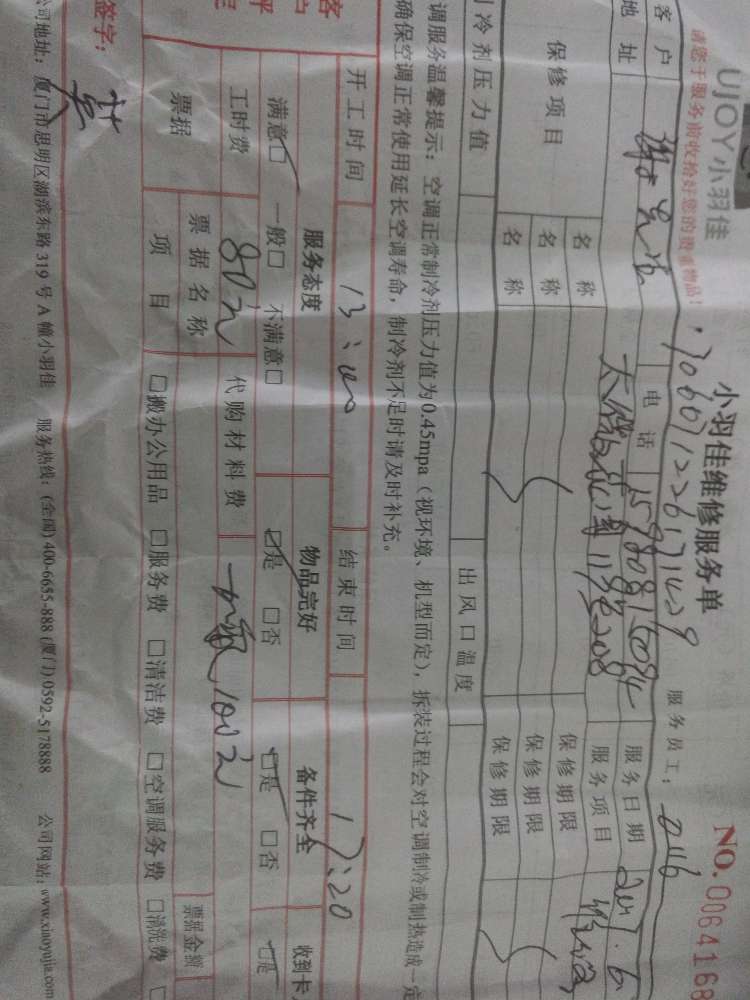 UJOY小羽佳
小羽佳维修服务单
NO.0064168
请您于服务前收拾好您的贵重物品!
服务员工:
客户
电话
15980815084
服务日期
地址
服务项目
保修项目
名称
保修期限
名称
保修期限
名称
保修期限
制冷剂压力值
出风口温度
调服务温馨提示:空调正常制冷剂压力值为0.45mpa(视环境、机型而定),拆装过程会对空调制冷或制热造成一定
确保空调正常使用延长空调寿命,制冷剂不足时请及时补充。
开工时间
13:00
结束时间
17:20
客
服务态度
物品完好
备件齐全
收到卡
满意□ 一般□ 不满意□
□是 □否
□是 □否
□是
工时费
80元
代购材料费
100元
票据
票据名称
票据金额
项目
□搬办公用品 □服务费 □清洁费 □空调服务费 □清洗费
签字:
公司地址:厦门市思明区湖滨东路319号A幢小羽佳 服务热线:(全国)400-6655-888(厦门)0592-5178888 公司网站:www.xiaoyujia.com